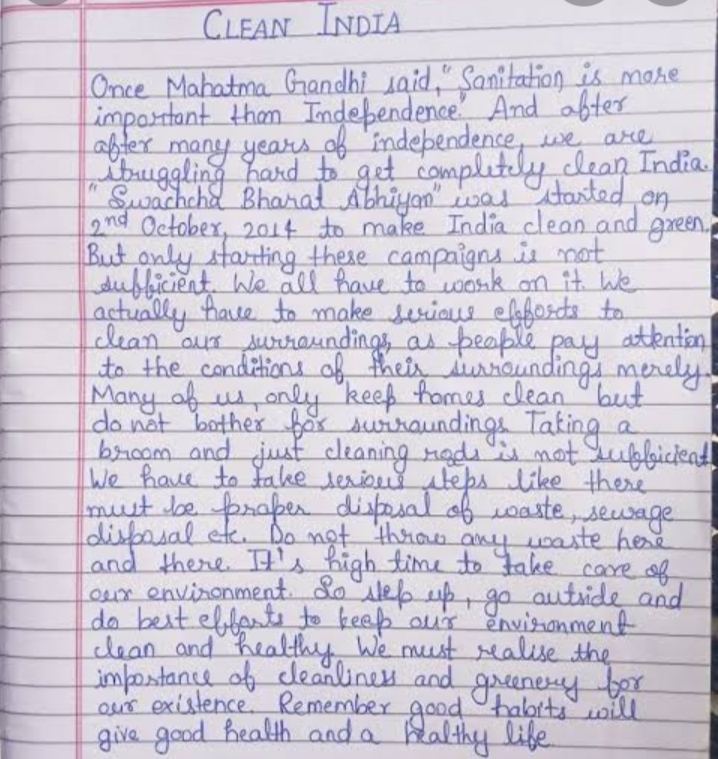 CLEAN INDIA
Once Mahatma Gandhi said, "Sanitation is more
important than Independence". And after
after many years of independence, we are
struggling hard to get completely clean India.
"Swachcha Bharat Abhiyan" was started on
2nd October, 2014 to make India clean and green.
But only starting these campaigns is not
sufficient. We all have to work on it. We
actually have to make serious efforts to
clean our surroundings, as people pay attention
to the conditions of their surroundings merely.
Many of us, only keep homes clean but
do not bother for surroundings. Taking a
broom and just cleaning rods is not sufficient.
We have to take serious steps like there
must be proper disposal of waste, sewage
disposal etc. Do not throw any waste here
and there. It's high time to take care of
our environment. So step up, go outside and
do best efforts to keep our environment
clean and healthy. We must realise the
importance of cleanliness and greenery for
our existence. Remember good habits will
give good health and a healthy life